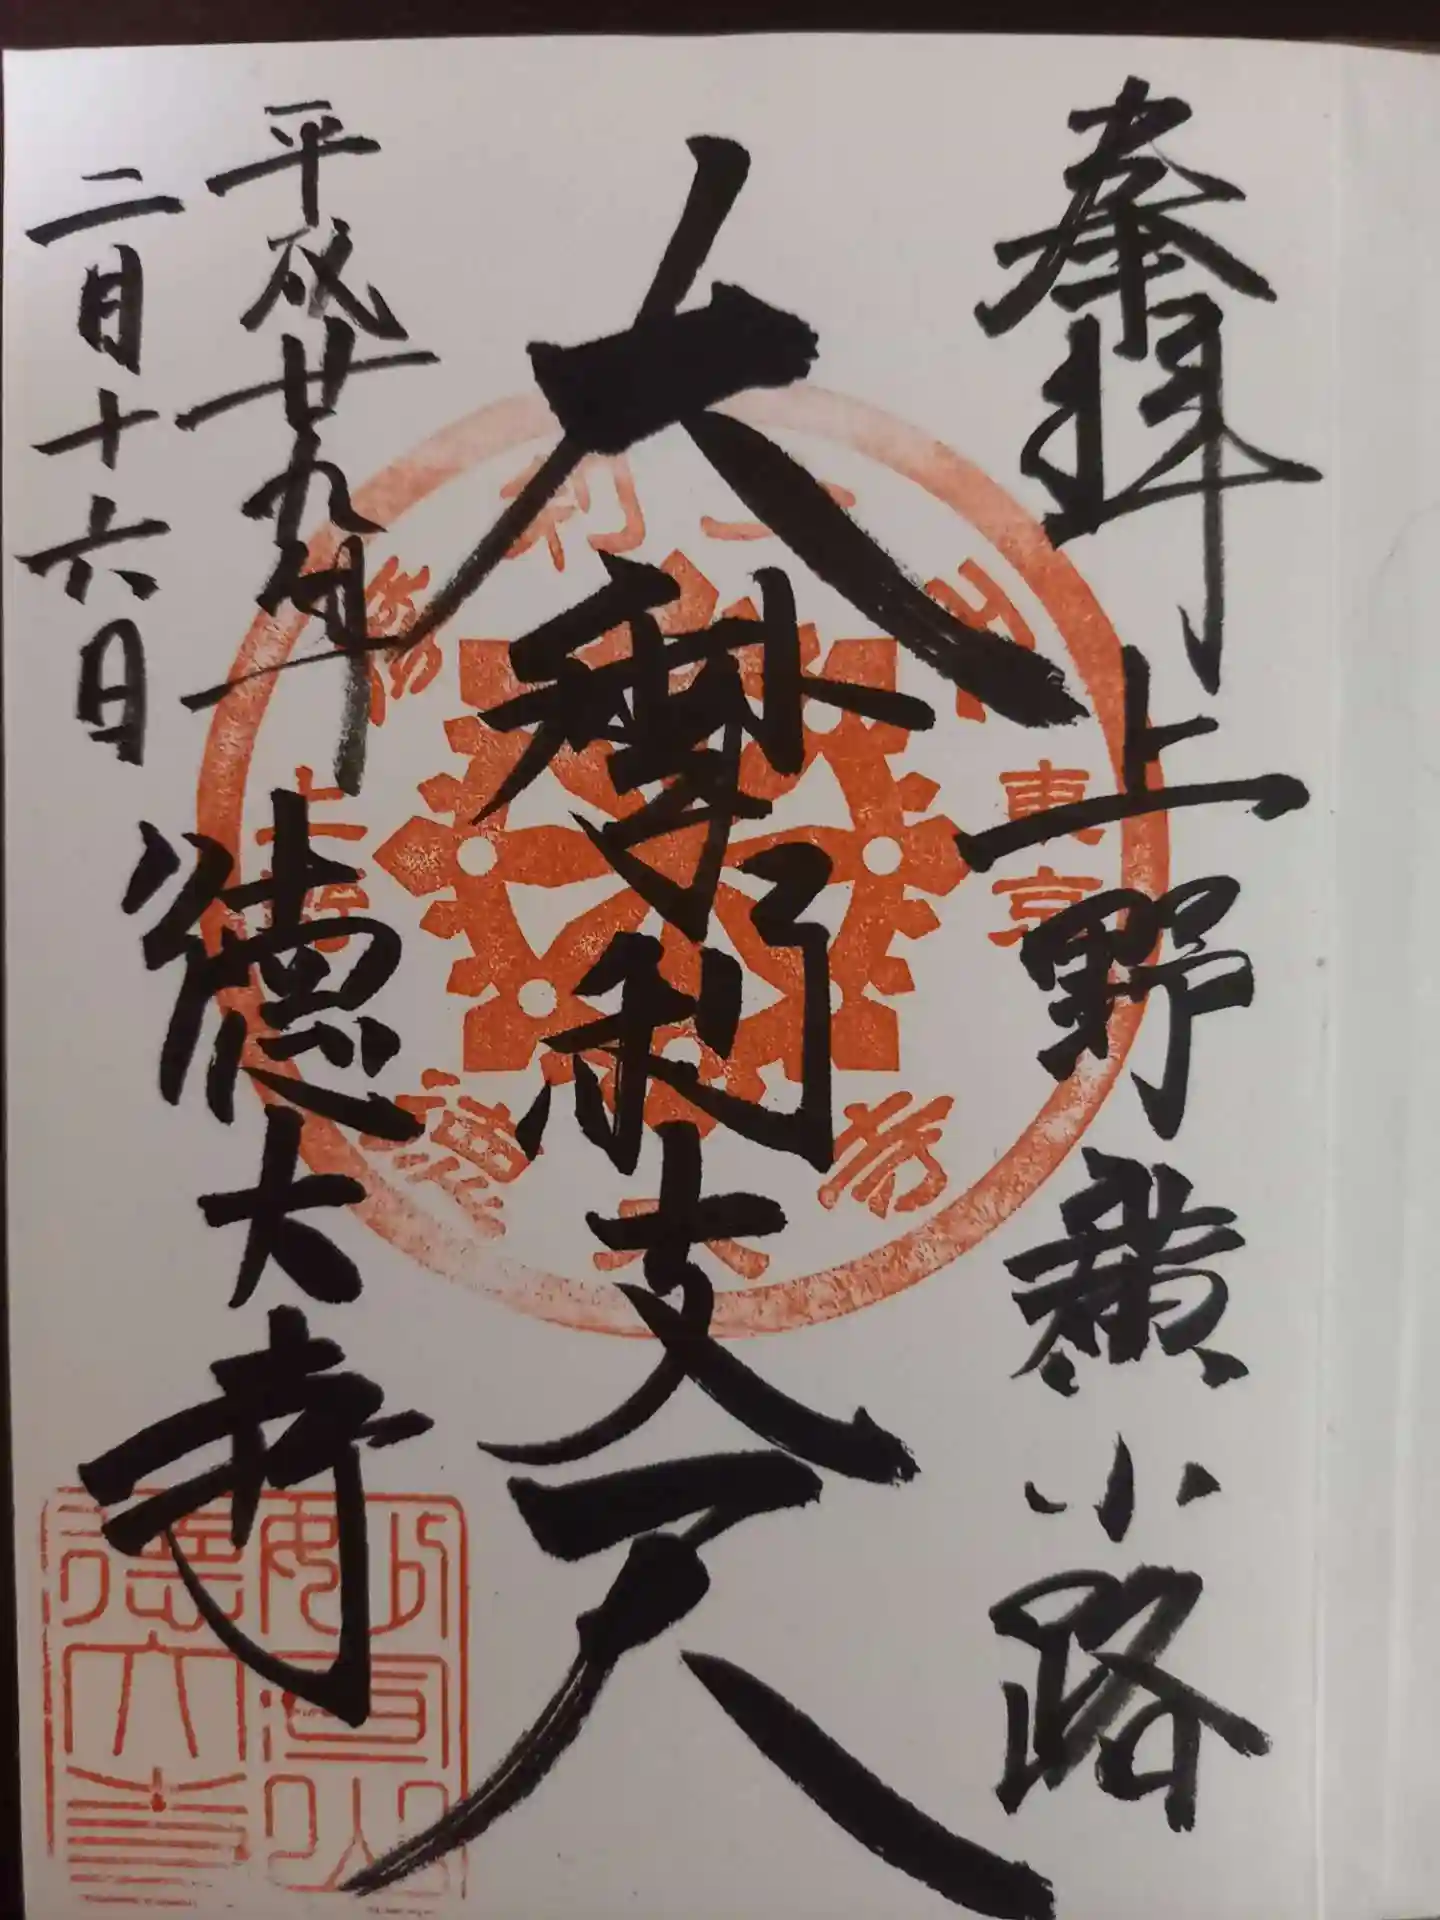 奉拝 上野廣小路
大摩利支天
平成廿九年
二月十六日
徳大寺
東京
上野
徳大寺